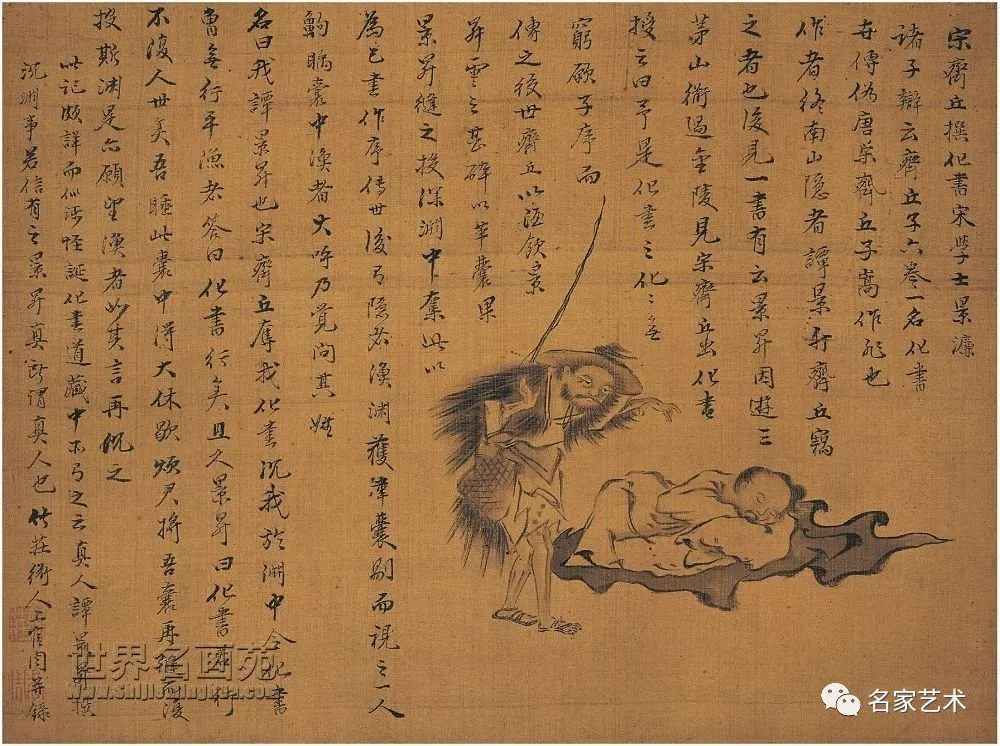 宋齊丘撰化書宋學士景濂
諸子辯云齊丘子六卷一名化書
世傳偽唐宋齊丘子嵩作非也
作者終南山隱者譚景升齊丘竊
之者也後見一書有云景昇因遊三
茅山衜過金陵見宋齊丘出化書
授云曰予是化書之化之無
窮願子序而
傳之後世齊丘以酒飲景
昇雪之甚碎以革囊
景昇縫之投深淵中奪此以
為己書作序傳世後有隱者漁淵獲革囊剔而視之一人
鼾睡囊中漁者大呼乃覺問其姓
名曰我譚景昇也宋齊丘奪我化書沉我於淵中今化書
曾無行乎漁者答曰化書行矣且久景昇曰化書若行
不復人世矣吾睡此囊中得大休歇煩君將吾囊再縫而復
投斯淵是亦願望漁者如其言再沉之
此記頗詳而似涉怪誕化書道藏中亦有之云真人譚景昇撰
沉淵事若信有之景昇真所謂真人也
世界名画苑
名家艺术